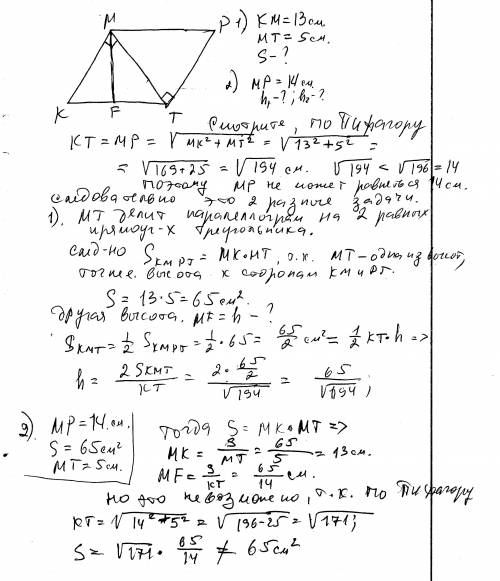 M P 1) KM = 13 см.
MT = 5 см.
S - ?
2) MP = 14 см.
h₁ - ? ; h₂ - ?
K F T
Смотрите, по Пифагору
KT = MP = √MK² + MT² = √13² + 5² =
= √169+25 = √194 см. √194 < √196 = 14
Поэтому MP не может равняться 14 см.
следовательно это 2 разные задачи.
1). MT делит параллелограм на 2 равных
прямоуг-х треугольника.
след-но S KMPT = MK·MT, т.к. MT – одна из высот,
точнее высота к сторонам KM и PT.
S = 13·5 = 65 см².
Другая высота. MF = h - ?
S KMT = 1/2 S KMPT = 1/2 · 65 = 65/2 см² = 1/2 KT·h =>
h = 2 S KMT / KT = 2·65/2 / √194 = 65/√194 ;
2). MP = 14 см. Тогда S = MK·MT =>
S = 65 см² MK = S/MT = 65/5 = 13 см.
MT = 5 см. MF = S/KT = 65/14 см.
Но это невозможно, т.к. по Пифагору
KT = √14² + 5² = √196-25 = √171 ;
S = √171 · 65/14 ≠ 65 см²